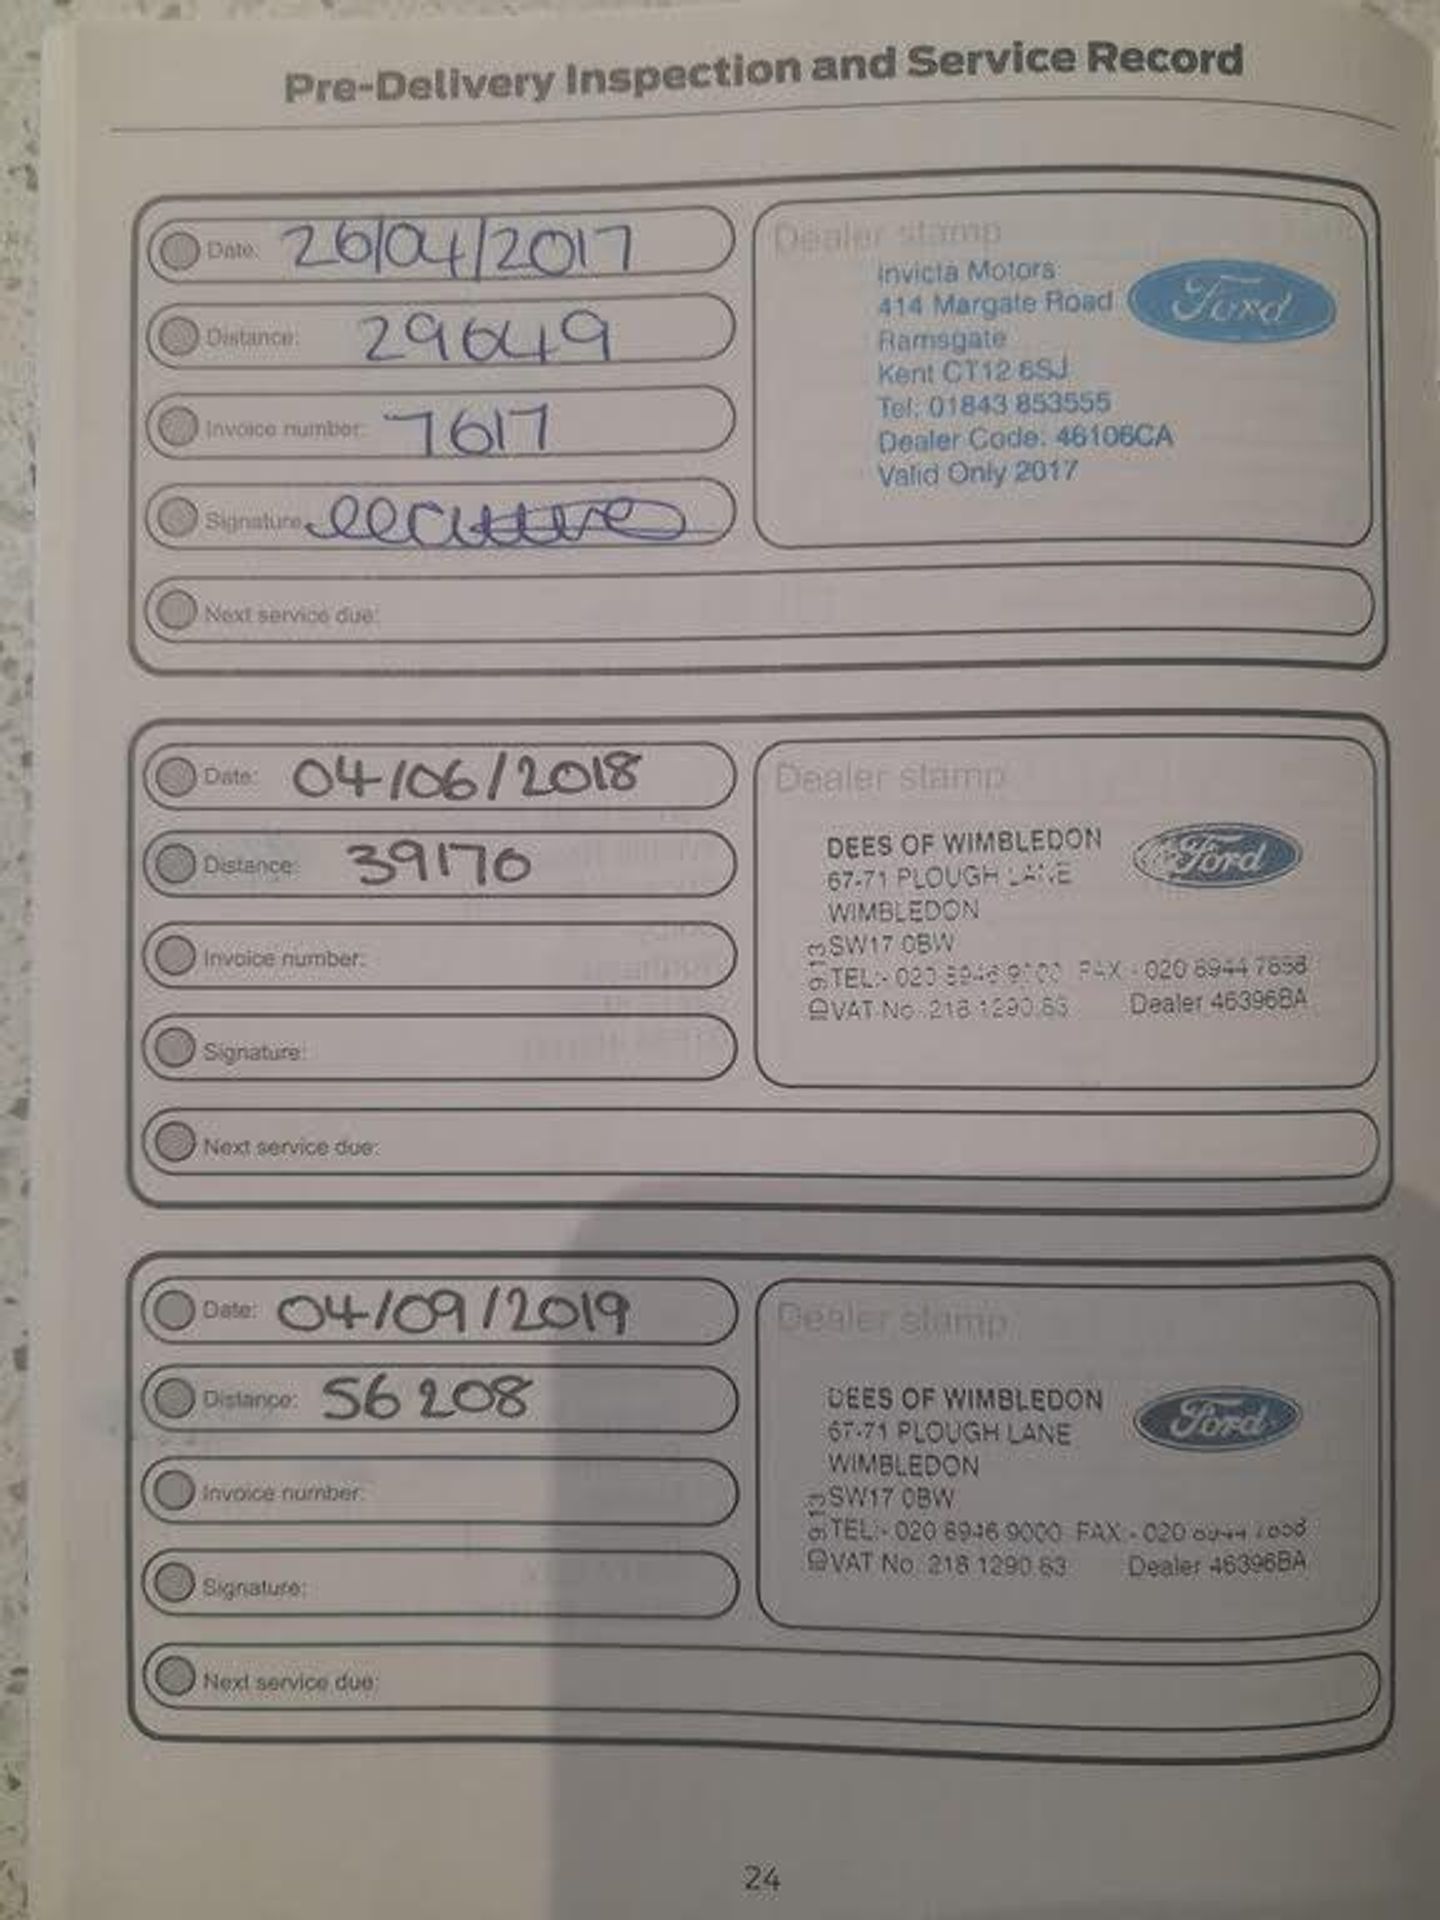 Pre-Delivery Inspection and Service Record
Date: 26/04/2017
Distance: 29649
Invoice number: 7617
Signature:
Next service due:
Dealer stamp
Invicta Motors
414 Margate Road
Ramsgate
Kent CT12 6SJ
Tel: 01843 853555
Dealer Code: 46106CA
Valid Only 2017
Ford
Date: 04/06/2018
Distance: 39170
Invoice number:
Signature:
Next service due:
Dealer stamp
DEES OF WIMBLEDON
67-71 PLOUGH LANE
WIMBLEDON
SW17 0BW
TEL:- 020 8946 9000 FAX:- 020 8944 7658
VAT No. 218 1290 63 Dealer 46396BA
ID 913
Ford
Date: 04/09/2019
Distance: 56208
Invoice number:
Signature:
Next service due:
Dealer stamp
DEES OF WIMBLEDON
67-71 PLOUGH LANE
WIMBLEDON
SW17 0BW
TEL:- 020 8946 9000 FAX:- 020
VAT No. 218 1290 63 Dealer 46396BA
ID 913
Ford
24